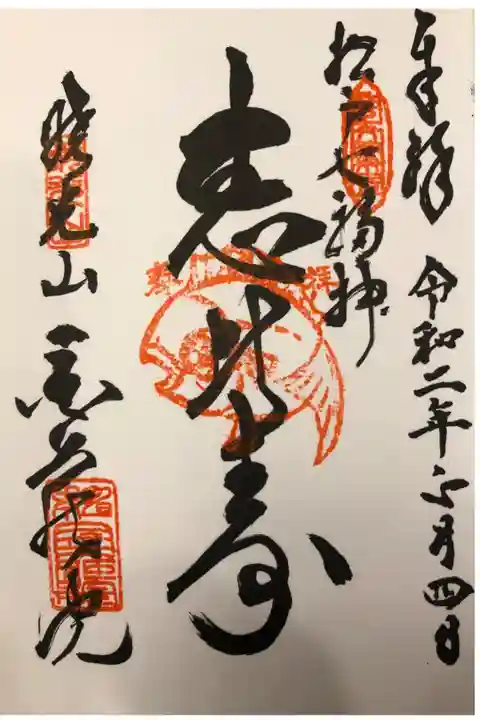 奉拝 令和二年正月四日
松戸七福神
恵比寿
暁光山